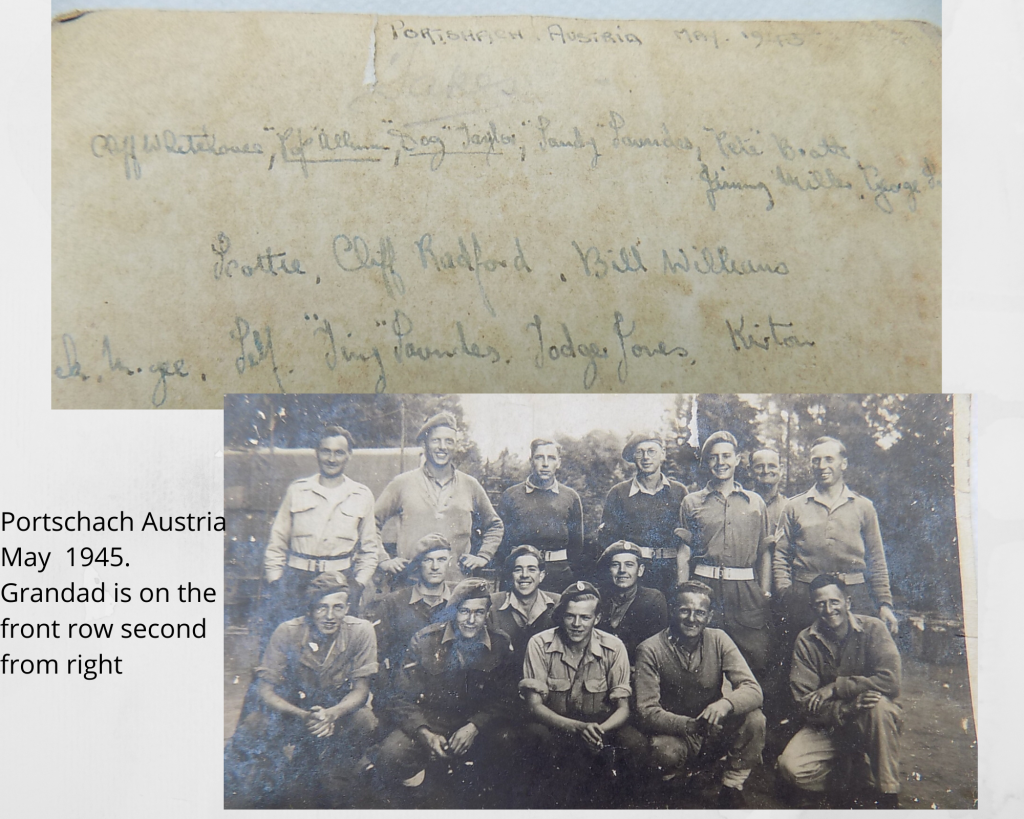 PORTSHACH. AUSTRIA MAY. 1945
Cliff Whitehouse, "Pop" Allum, "Dog" Taylor, "Sandy" Saundes, "Pete" Bratt,
Jimmy Miller, George
Scottie, Cliff Radford, Bill Williams
Self. "Tiny" Saundes. Todge Jones, Kirton
Portschach Austria
May 1945.
Grandad is on the
front row second
from right